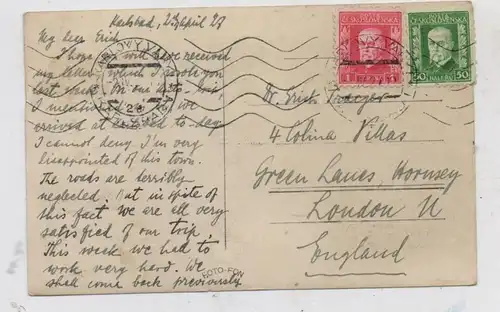 Karlsbad, 23/April 27
My dear Erich
I hope you will have received
my letter, which I wrote you
last week. On our
I mentioned
arrived at to-day
I cannot deny I'm very
disappointed of this town.
The roads are terribly
neglected. But in spite of
this fact we are all very
satisfied of our trip.
This week we had to
work very hard. We
shall come back previously
FOTO-FON
KARLOVY VARY
ČESKOSLOVENSKO
1
ČESKOSLOVENSKO
50 HALÉŘŮ 50
Dr. Erich
4 Colina Villas
Green Lanes, Hornsey
London N
England